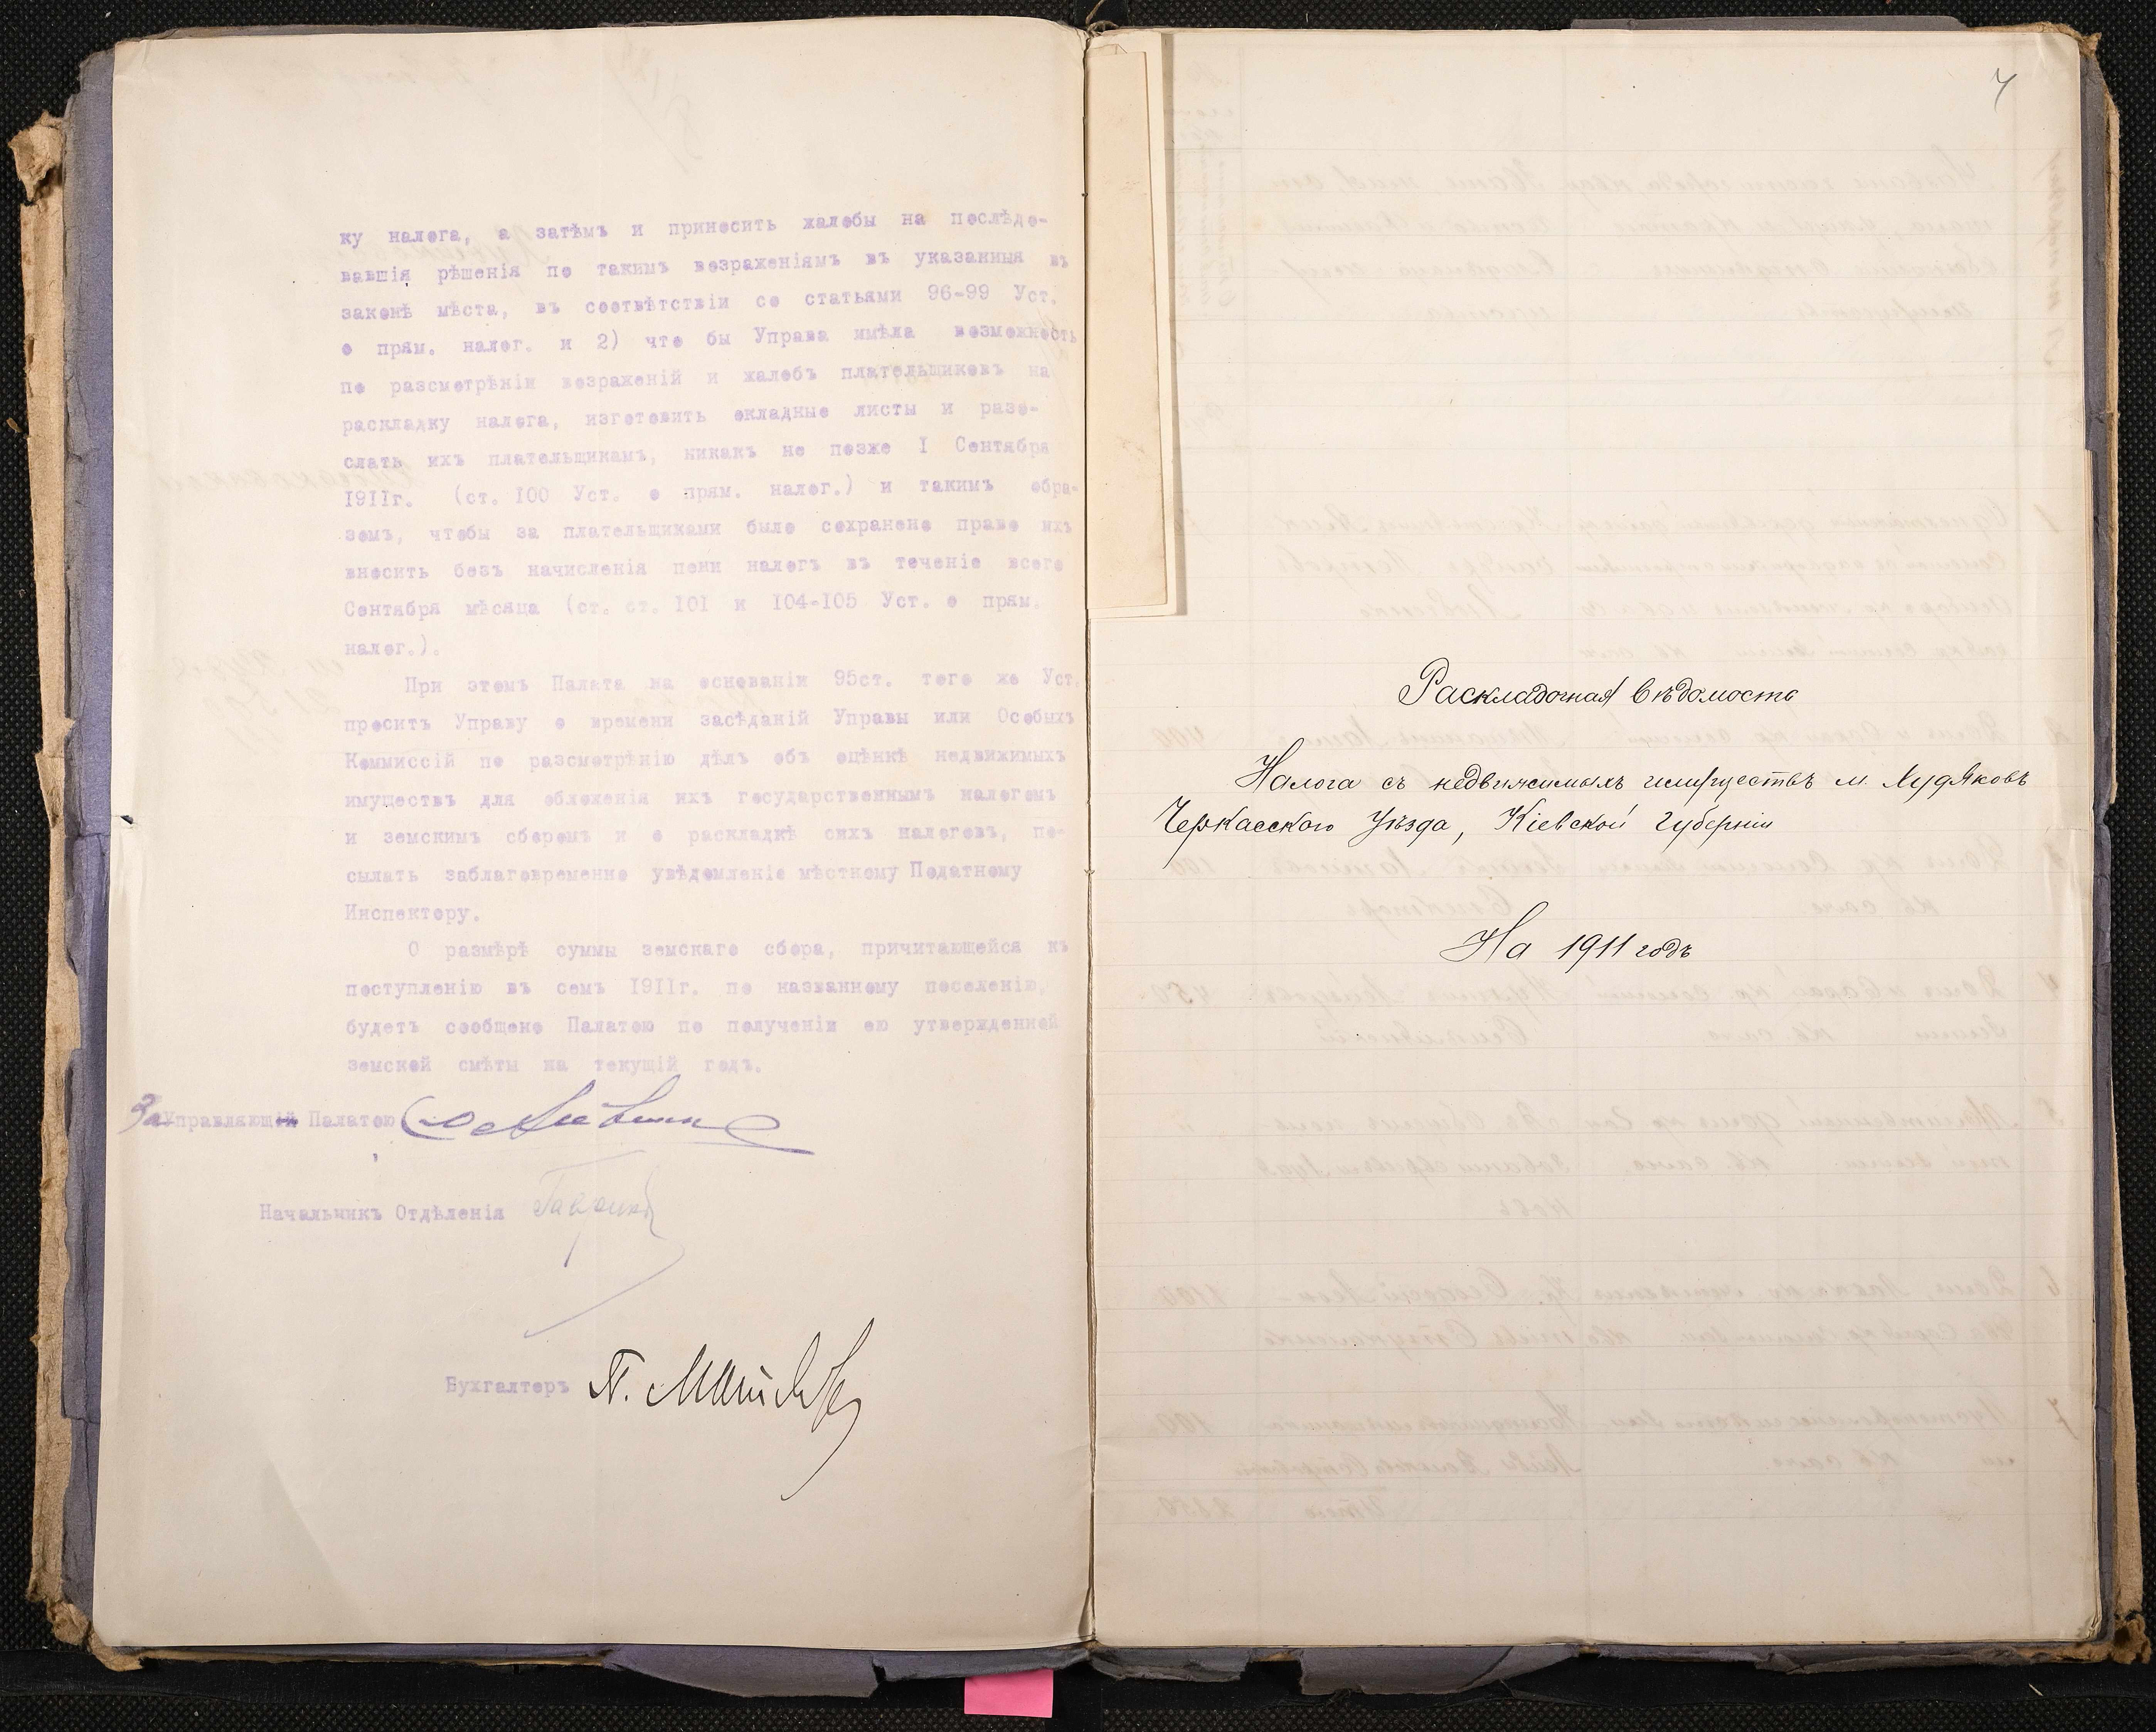 ку налога, а затѣмъ и приносить жалобы на послѣдо-
вавшія рѣшенія по такимъ возраженіямъ въ указанныя въ
законѣ мѣста, въ соотвѣтствіи со статьями 96-99 Уст.
о прям. налог. и 2) что бы Управа имѣла возможность
по разсмотрѣніи возраженій и жалобъ плательщиковъ на
раскладку налога, изготовить окладные листы и разо-
слать ихъ плательщикамъ, никакъ не позже I Сентября
I9IIг. (ст. I00 Уст. о прям. налог.) и такимъ обра-
зомъ, чтобы за плательщиками было сохранено право ихъ
вносить безъ начисленія пени налогъ въ теченіе всего
Сентября мѣсяца (ст. ст. I0I и I04-I05 Уст. о прям.
налог.).
При этомъ Палата на основаніи 95ст. того же Уст.
проситъ Управу о времени засѣданій Управы или Особыхъ
Коммиссій по разсмотрѣнію дѣлъ объ оцѣнкѣ недвижимыхъ
имуществъ для обложенія ихъ государственнымъ налогомъ
и земскимъ сборомъ и о раскладкѣ сихъ налоговъ, по-
сылать заблаговременно увѣдомленіе мѣстному Податному
Инспектору.
О размѣрѣ суммы земскаго сбора, причитающейся къ
поступленію въ семъ I9IIг. по названному поселенію,
будетъ сообщено Палатою по полученіи ею утвержденной
земской смѣты на текущій годъ.
За Управляющій Палатою
Начальникъ Отдѣленія
Бухгалтеръ П.
7
Раскладочная вѣдомость
Налога съ недвижимыхъ имуществъ м. Худяковъ
Черкасского уѣзда, Кіевской губерніи
На 1911 годъ